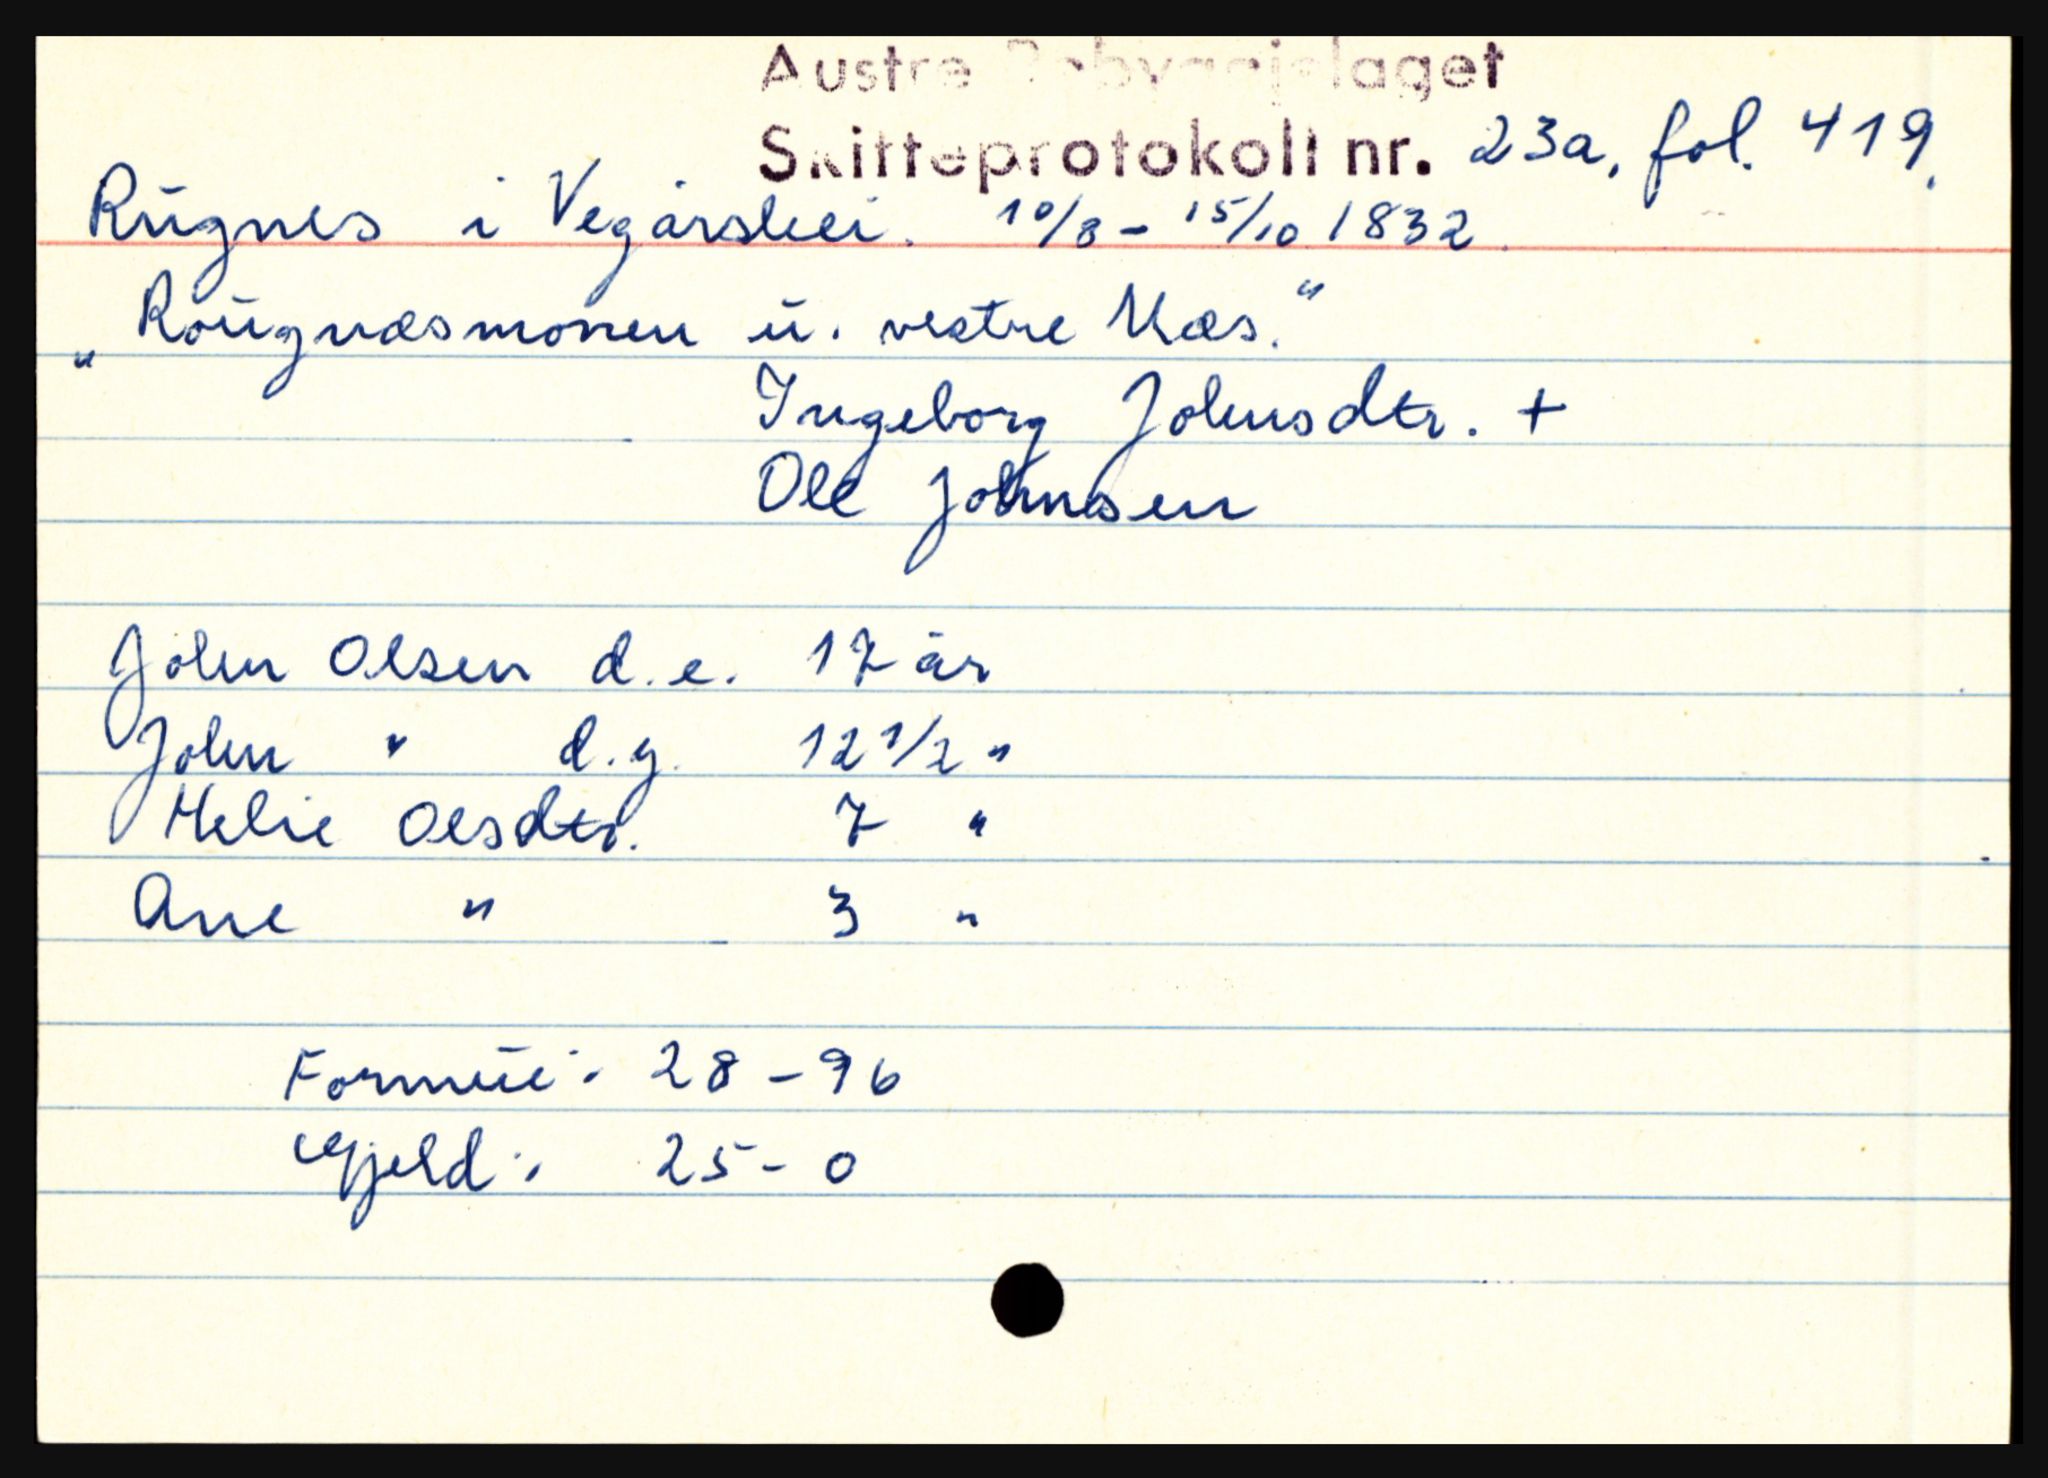 Austre Råbyggjelaget
Skifteprotokoll nr. 23a, fol. 419.
Rugnes i Vegårshei. 10/8 - 15/10 1832.
"Rougnæsmonen u. vestre Næs."
Ingeborg Johnsdtr. +
Ole Johnsen
John Olsen d.e. 17 år
John " d.y. 12 1/2 "
Helie Olsdtr. 7 "
Ane " 3 "
Formue: 28 - 96
Gjeld: 25 - 0